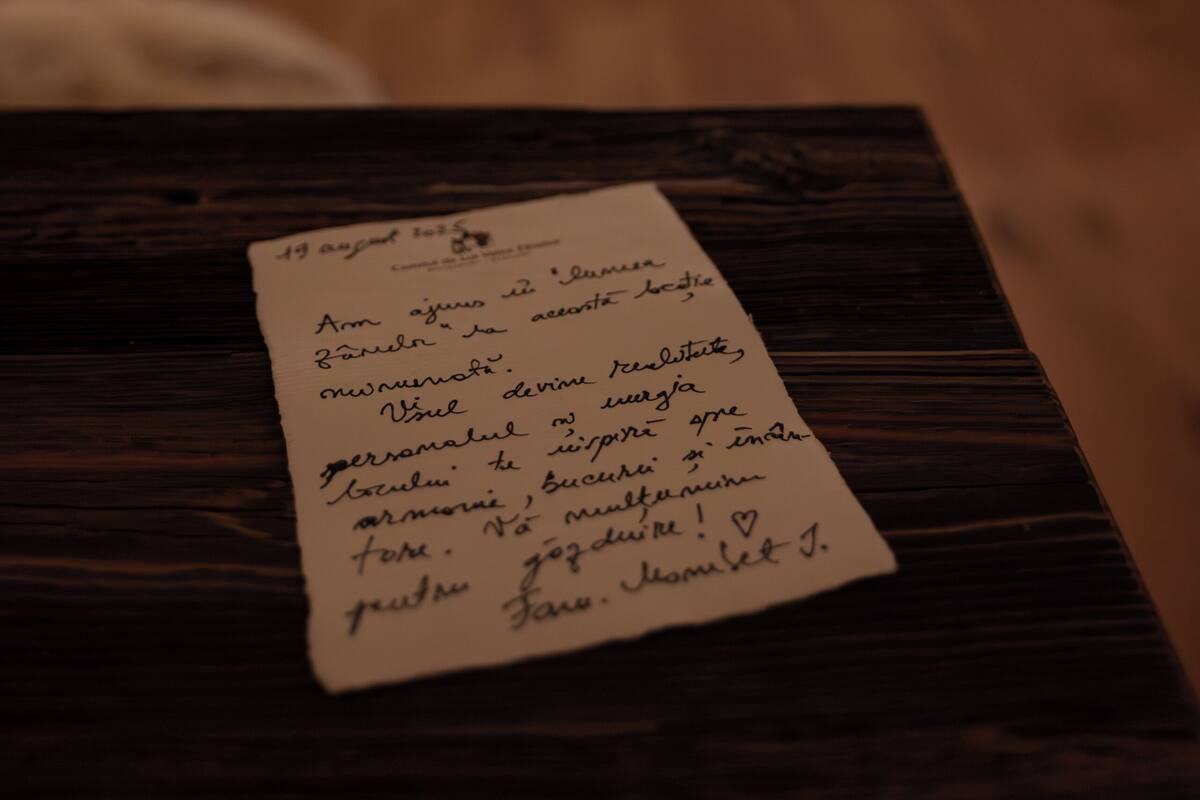 19 august 2025
Castelul de Lut Valea Zânelor
Am ajuns în "lumea
zânelor" la această locație
minunată.
Visul devine realitate,
personalul și energia
locului te inspiră spre
armonie, bucurii și încân-
tare. Vă mulțumim
pentru găzduire! ♡
Fam.